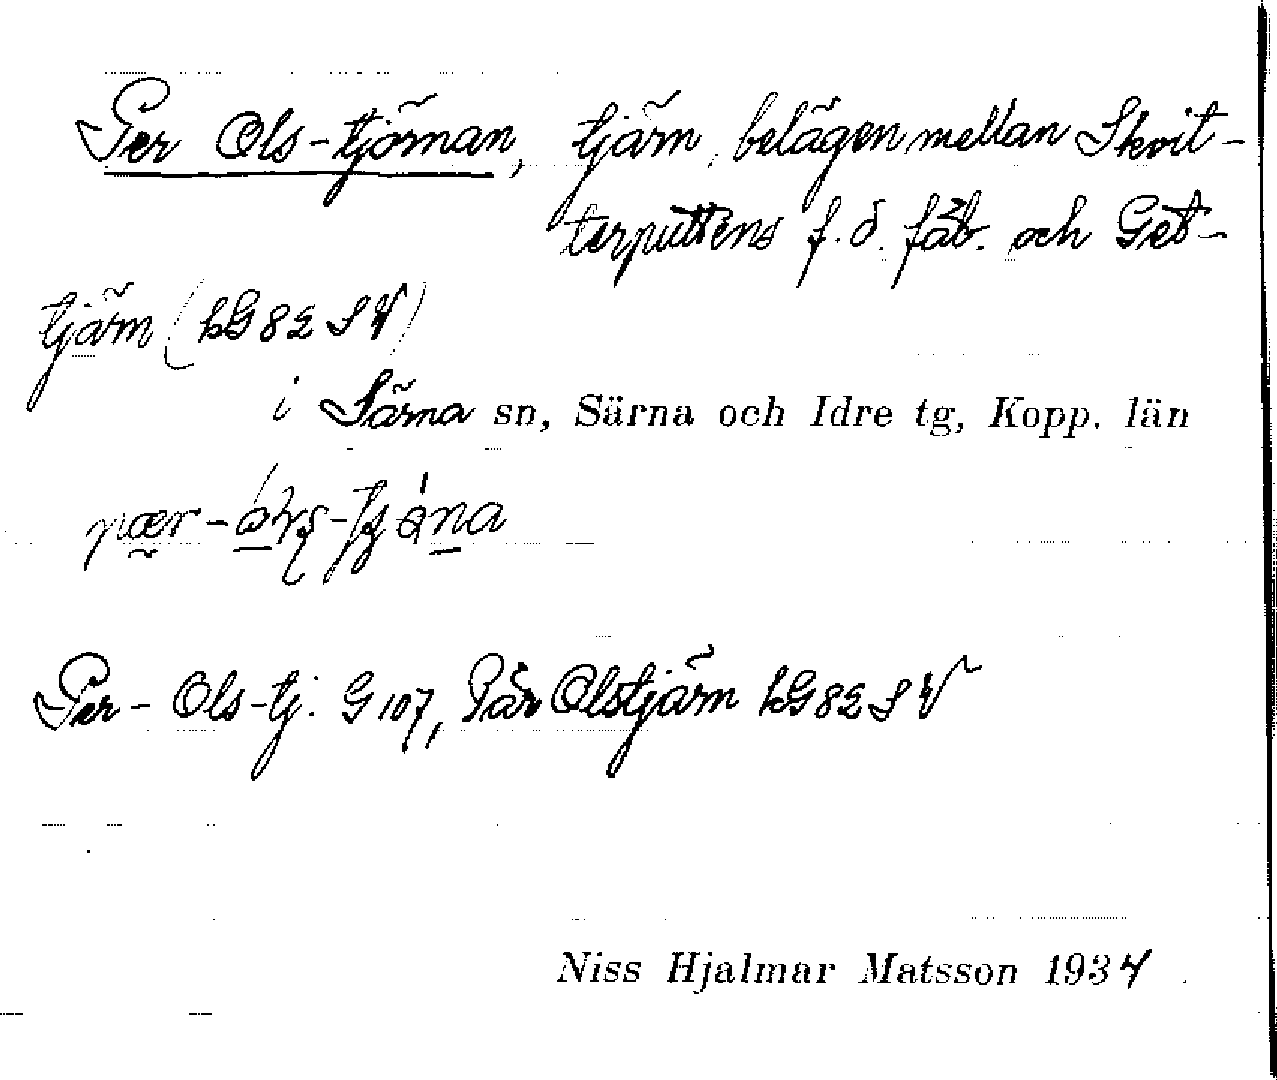 Per Ols-tjörnan, tjärn, belägen mellan Skvit-
terputtens f.d. fäb. och Get-
tjärn (bG82SV)
i Särna sn, Särna och Idre tg, Kopp. län
Per-Ols-tj. G107, Pär Olstjärn bG82SV
Niss Hjalmar Matsson 1934